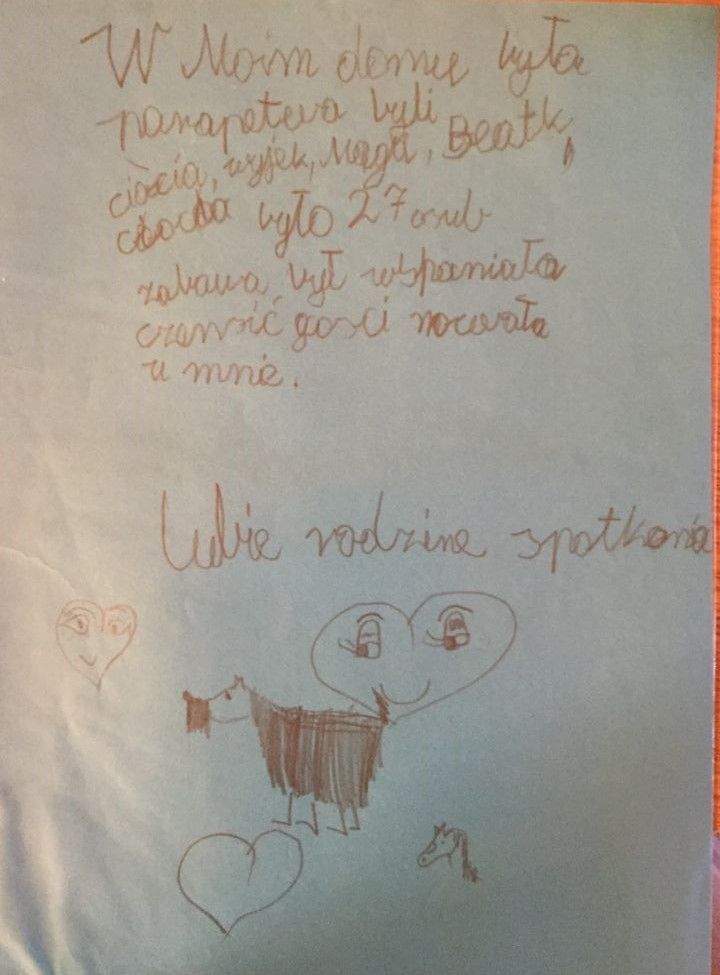 W Moim domu była
parapeteva byli
ciocia, wyjek, Magda, Beatk,
ciocia było 27 osub
zabawa był wspaniała
czensić gosci nocowała
u mnie.
Lubie rodzine spotkania